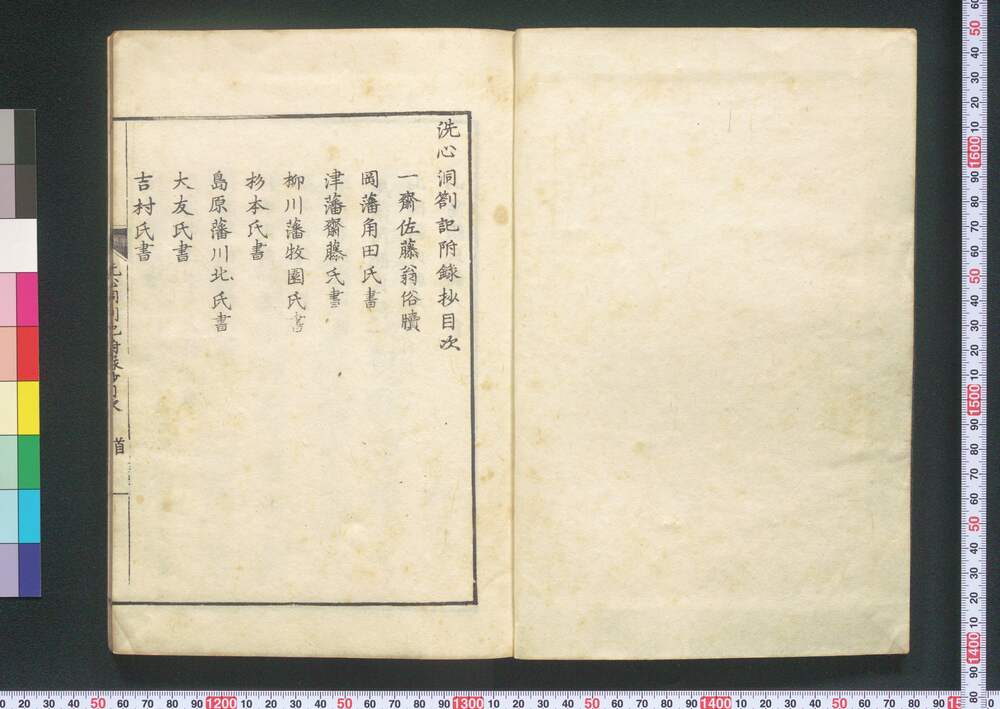 洗心洞劄記附録抄目次
一齋佐藤翁俗牘
岡藩角田氏書
津藩齋藤氏書
柳川藩牧園氏書
杉本氏書
島原藩川北氏書
大友氏書
吉村氏書
洗心洞劄記附録抄目次 首